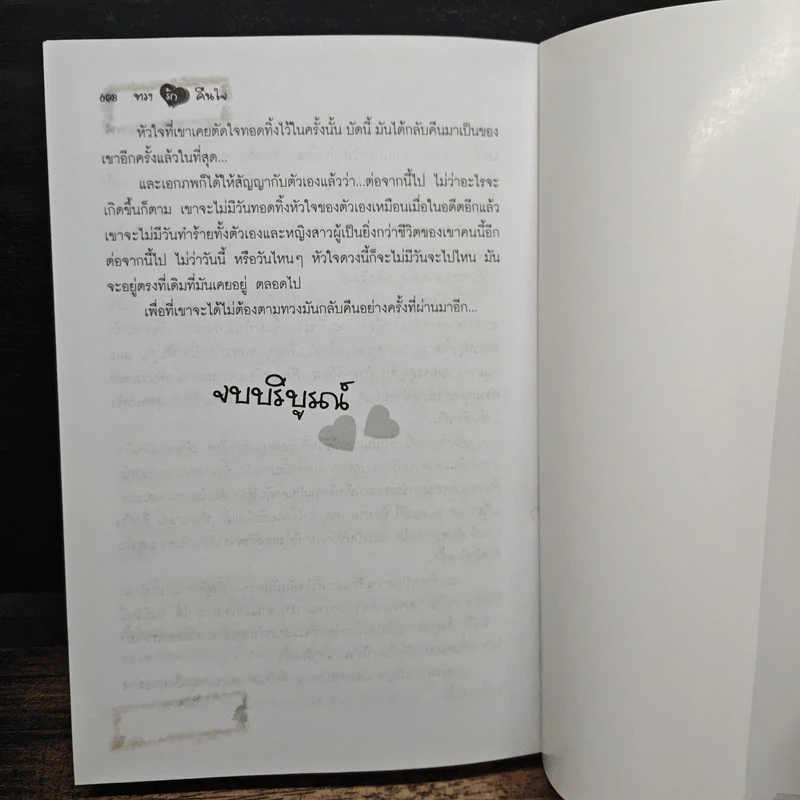 608 ทวงรักคืนใจ
หัวใจที่เขาเคยตัดใจทอดทิ้งไว้ในครั้งนั้น บัดนี้ มันได้กลับคืนมาเป็นของ
เขาอีกครั้งแล้วในที่สุด...
และเอกภพก็ได้ให้สัญญากับตัวเองแล้วว่า...ต่อจากนี้ไป ไม่ว่าอะไรจะ
เกิดขึ้นก็ตาม เขาจะไม่มีวันทอดทิ้งหัวใจของตัวเองเหมือนเมื่อในอดีตอีกแล้ว
เขาจะไม่มีวันทำร้ายทั้งตัวเองและหญิงสาวผู้เป็นยิ่งกว่าชีวิตของเขาคนนี้อีก
ต่อจากนี้ไป ไม่ว่าวันนี้ หรือวันไหนๆ หัวใจดวงนี้ก็จะไม่มีวันจะไปไหน มัน
จะอยู่ตรงที่เดิมที่มันเคยอยู่ ตลอดไป
เพื่อที่เขาจะได้ไม่ต้องตามทวงมันกลับคืนอย่างครั้งที่ผ่านมาอีก...
จบบริบูรณ์